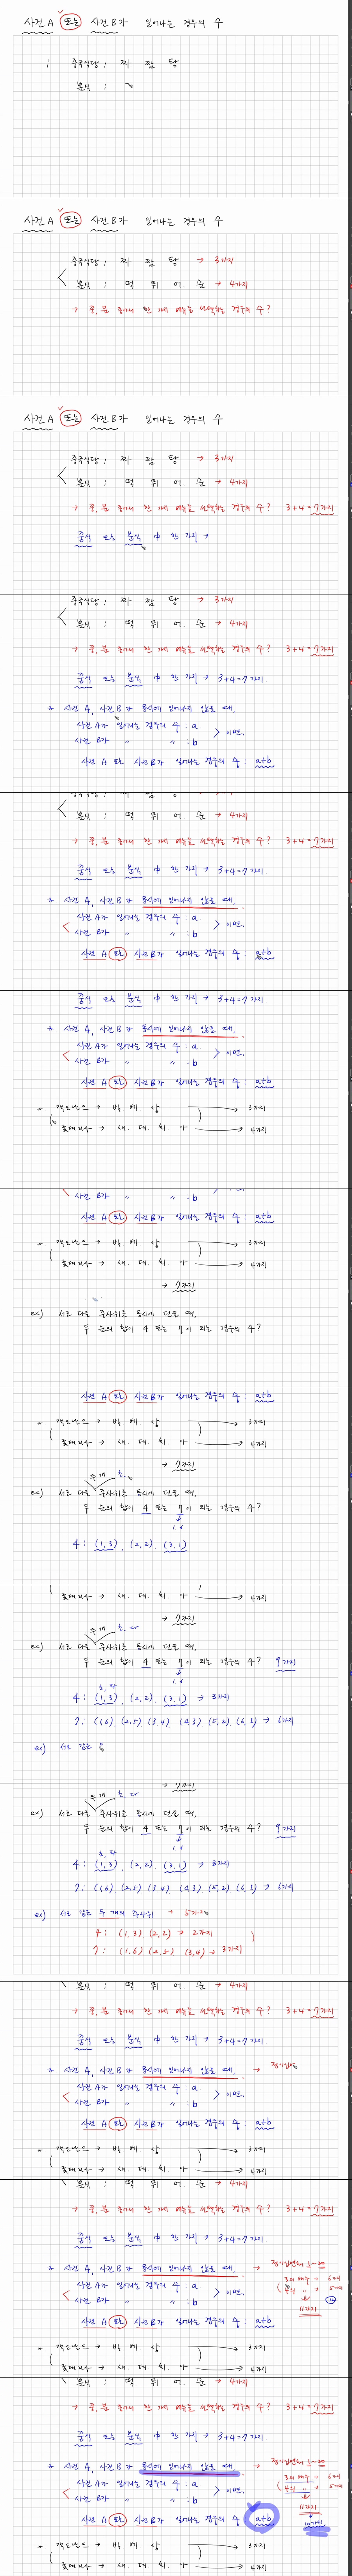 사건 A 또는 사건 B가 일어나는 경우의 수
중국식당 : 짜 짬 탕
분식 :
사건 A 또는 사건 B가 일어나는 경우의 수
중국식당 : 짜 짬 탕 → 3가지
분식 : 떡 튀 어 순 → 4가지
→ 중, 분 중에서 한 가지 메뉴를 선택하는 경우의 수?
사건 A 또는 사건 B가 일어나는 경우의 수
중국식당 : 짜 짬 탕 → 3가지
분식 : 떡 튀 어 순 → 4가지
→ 중, 분 중에서 한 가지 메뉴를 선택하는 경우의 수? 3+4=7가지
중식 또는 분식 中 한 가지 →
중국식당 : 짜 짬 탕 → 3가지
분식 : 떡 튀 어 순 → 4가지
→ 중, 분 중에서 한 가지 메뉴를 선택하는 경우의 수? 3+4=7가지
중식 또는 분식 中 한 가지 → 3+4=7가지
* 사건 A, 사건 B가 동시에 일어나지 않을 때,
사건 A가 일어나는 경우의 수 : a
사건 B가 〃 〃 : b 이면,
사건 A 또는 사건 B가 일어나는 경우의 수 : a+b
분식 : 떡 튀 어 순 → 4가지
→ 중, 분 중에서 한 가지 메뉴를 선택하는 경우의 수? 3+4=7가지
중식 또는 분식 中 한 가지 → 3+4=7가지
* 사건 A, 사건 B가 동시에 일어나지 않을 때,
사건 A가 일어나는 경우의 수 : a
사건 B가 〃 〃 : b 이면,
사건 A 또는 사건 B가 일어나는 경우의 수 : a+b
중식 또는 분식 中 한 가지 → 3+4=7가지
* 사건 A, 사건 B가 동시에 일어나지 않을 때,
사건 A가 일어나는 경우의 수 : a
사건 B가 〃 〃 : b 이면,
사건 A 또는 사건 B가 일어나는 경우의 수 : a+b
맥도날드 → 빅 에 상 → 3가지
롯데리아 → 새. 데. 치. 아 → 4가지
사건 B가 〃 〃 : b
사건 A 또는 사건 B가 일어나는 경우의 수 : a+b
맥도날드 → 빅 에 상 → 3가지
롯데리아 → 새. 데. 치. 아 → 4가지
→ 7가지
ex) 서로 다른 주사위를 동시에 던질 때,
두 눈의 합이 4 또는 7이 되는 경우의 수?
사건 A 또는 사건 B가 일어나는 경우의 수 : a+b
맥도날드 → 빅 에 상 → 3가지
롯데리아 → 새. 데. 치. 아 → 4가지
→ 7가지
두 개
ex) 서로 다른 주사위를 동시에 던질 때,
두 눈의 합이 4 또는 7이 되는 경우의 수?
1. 6
4 : (1, 3), (2, 2), (3, 1)
롯데리아 → 새. 데. 치. 아 → 4가지
→ 7가지
두 개
ex) 서로 다른 주사위를 동시에 던질 때,
두 눈의 합이 4 또는 7이 되는 경우의 수? 9가지
1. 6
4 : (1, 3), (2, 2), (3, 1) → 3가지
7 : (1, 6) (2, 5) (3, 4) (4, 3) (5, 2) (6, 1) → 6가지
ex) 서로 같은
→ 7가지
두 개
ex) 서로 다른 주사위를 동시에 던질 때,
두 눈의 합이 4 또는 7이 되는 경우의 수? 9가지
1. 6
4 : (1, 3), (2, 2), (3, 1) → 3가지
7 : (1, 6) (2, 5) (3, 4) (4, 3) (5, 2) (6, 1) → 6가지
ex) 서로 같은 두 개의 주사위 → 5가지
4 : (1, 3) (2, 2) → 2가지
7 : (1, 6) (2, 5) (3, 4) → 3가지
분식 : 떡 튀 어 순 → 4가지
→ 중, 분 중에서 한 가지 메뉴를 선택하는 경우의 수? 3+4=7가지
중식 또는 분식 中 한 가지 → 3+4=7가지
* 사건 A, 사건 B가 동시에 일어나지 않을 때,
사건 A가 일어나는 경우의 수 : a
사건 B가 〃 〃 : b 이면,
사건 A 또는 사건 B가 일어나는 경우의 수 : a+b
맥도날드 → 빅 에 상 → 3가지
롯데리아 → 새. 데. 치. 아 → 4가지
분식 : 떡 튀 어 순 → 4가지
→ 중, 분 중에서 한 가지 메뉴를 선택하는 경우의 수? 3+4=7가지
중식 또는 분식 中 한 가지 → 3+4=7가지
* 사건 A, 사건 B가 동시에 일어나지 않을 때, → 1~20
3의 배수 → 6가지
사건 A가 일어나는 경우의 수 : a
사건 B가 〃 〃 : b 이면,
11가지
사건 A 또는 사건 B가 일어나는 경우의 수 : a+b
맥도날드 → 빅 에 상 → 3가지
롯데리아 → 새. 데. 치. 아 → 4가지
분식 : 떡 튀 어 순 → 4가지
→ 중, 분 중에서 한 가지 메뉴를 선택하는 경우의 수? 3+4=7가지
중식 또는 분식 中 한 가지 → 3+4=7가지
* 사건 A, 사건 B가 동시에 일어나지 않을 때, → 1~20
3의 배수 → 6가지
사건 A가 일어나는 경우의 수 : a
사건 B가 〃 〃 : b 이면,
11가지
사건 A 또는 사건 B가 일어나는 경우의 수 : a+b
10가지
맥도날드 → 빅 에 상 → 3가지
롯데리아 → 새. 데. 치. 아 → 4가지